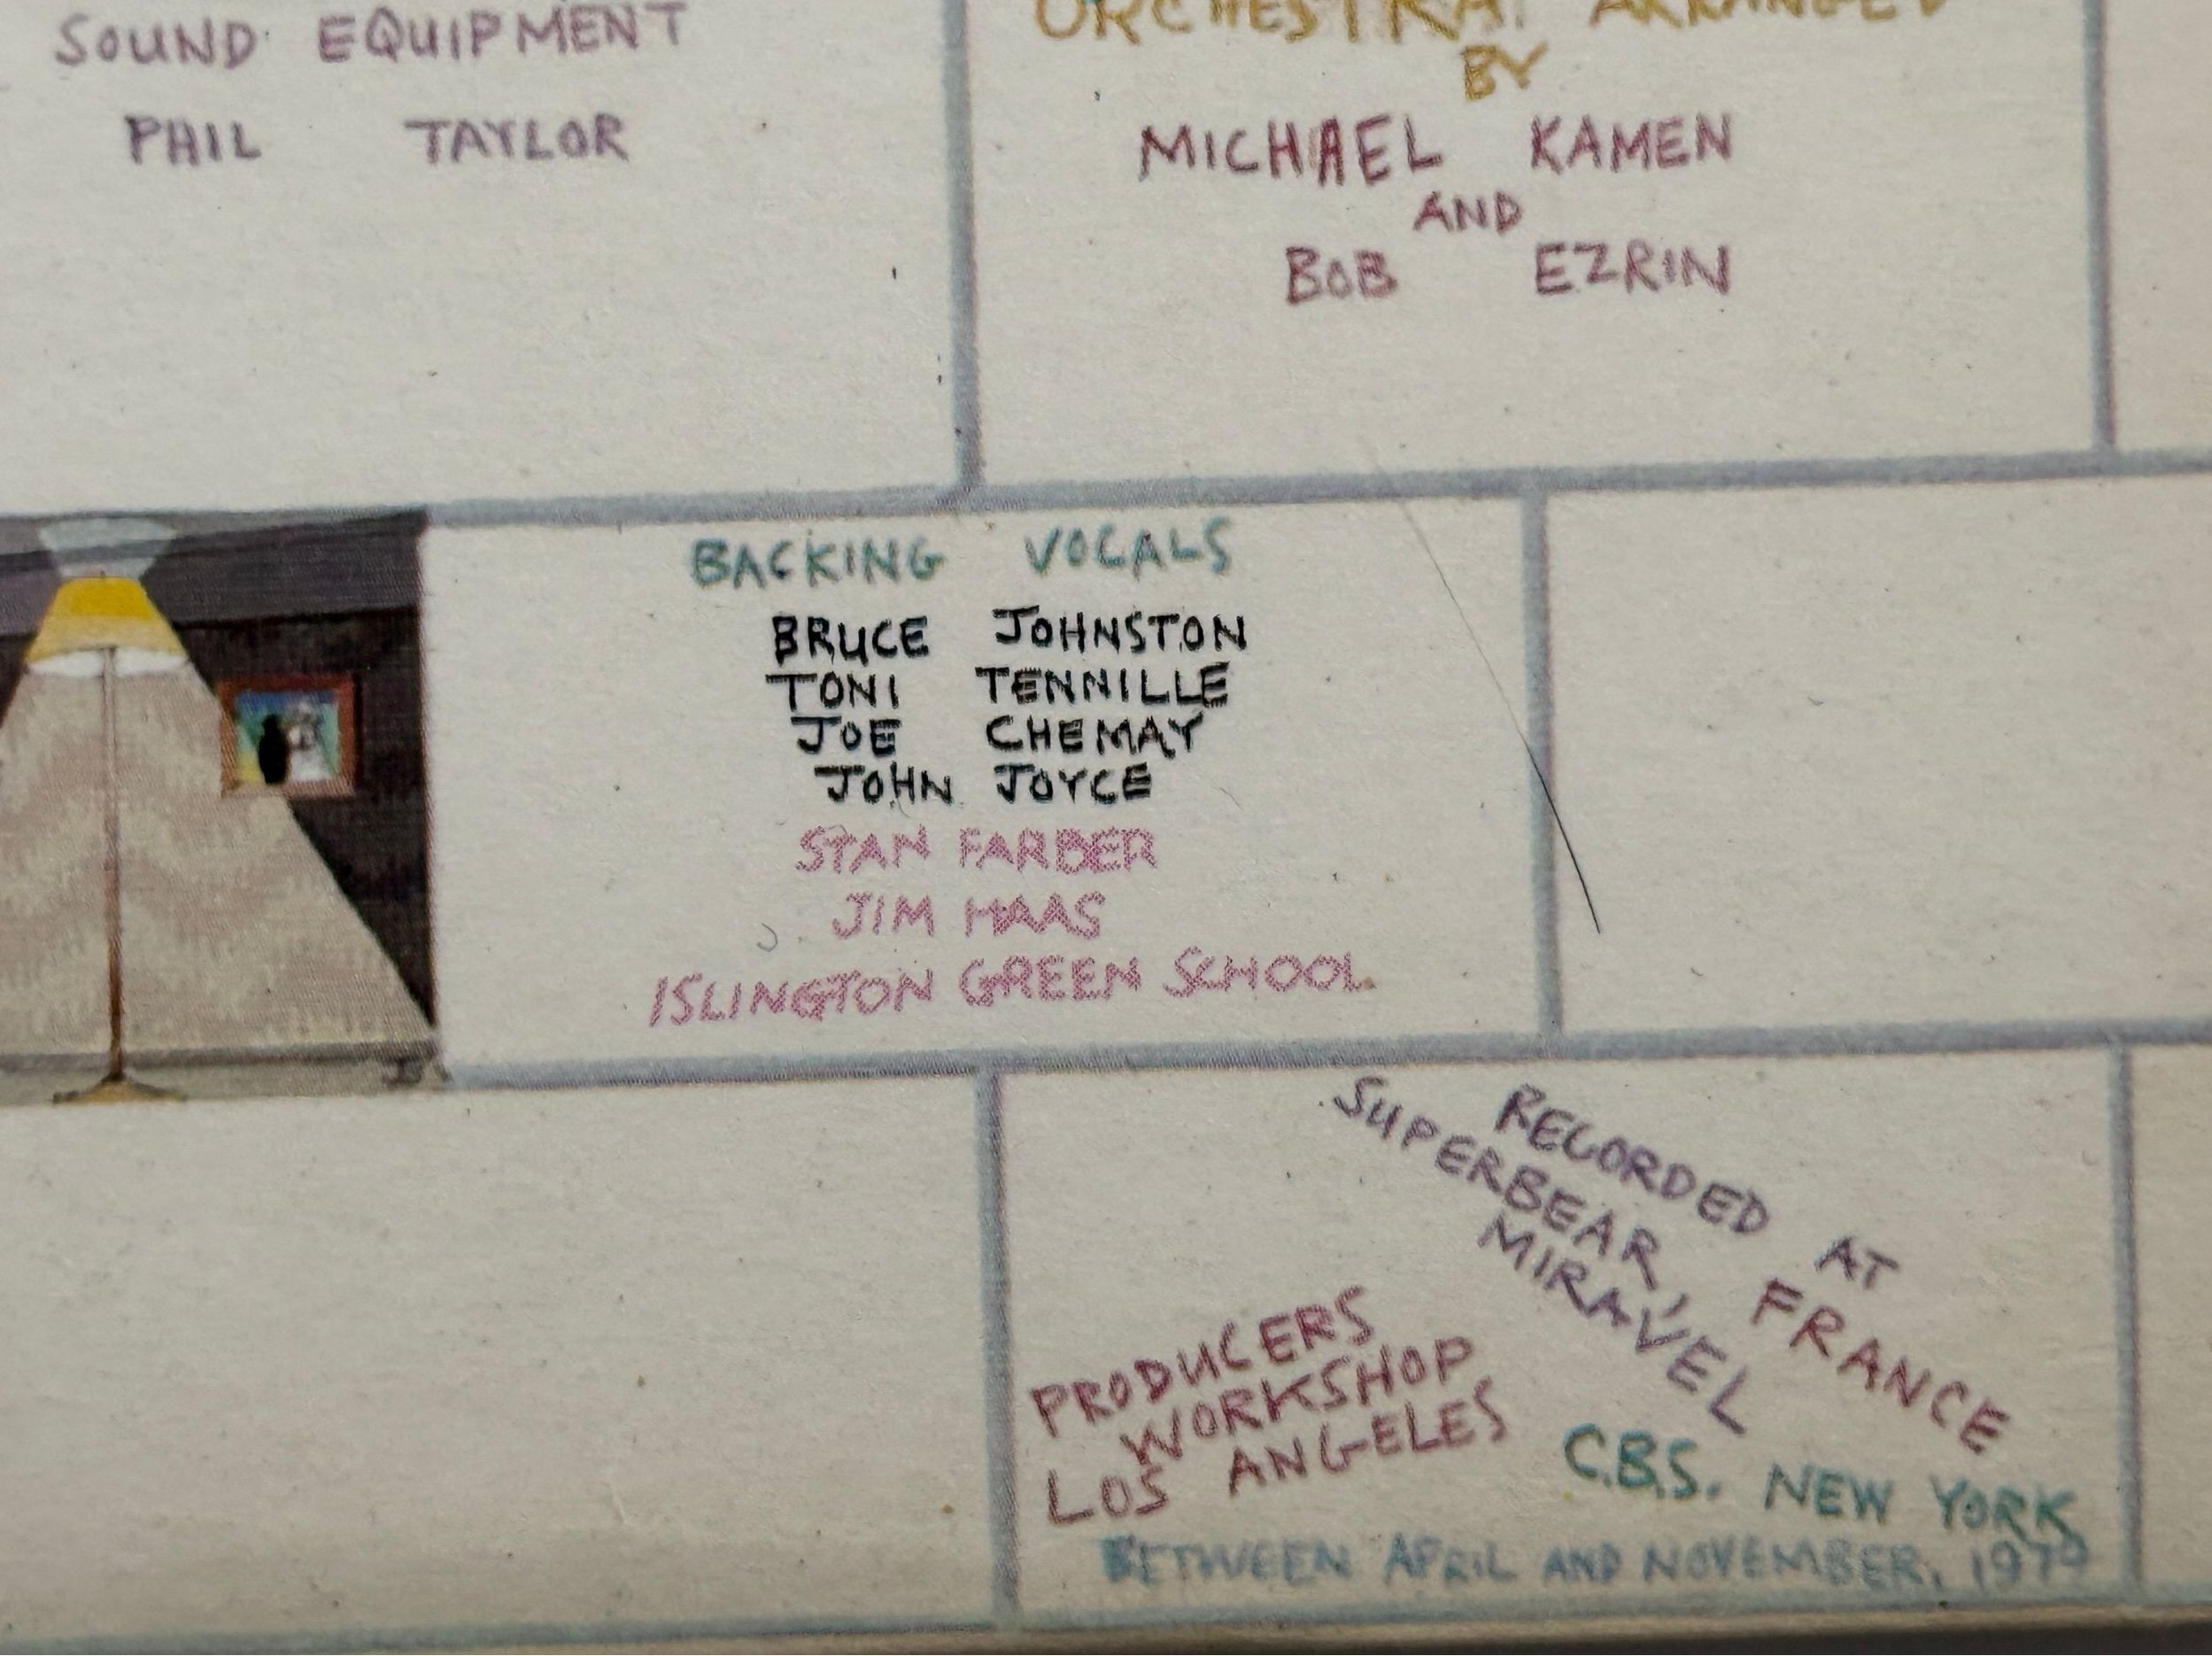 SOUND EQUIPMENT
PHIL TAYLOR
ORCHESTRA ARRANGED
BY
MICHAEL KAMEN
AND
BOB EZRIN
BACKING VOCALS
BRUCE JOHNSTON
TONI TENNILLE
JOE CHEMAY
JOHN JOYCE
STAN FARBER
JIM HAAS
ISLINGTON GREEN SCHOOL
RECORDED AT
SUPERBEAR, FRANCE
MIRAVEL
PRODUCERS
WORKSHOP
LOS ANGELES
C.B.S. NEW YORK
BETWEEN APRIL AND NOVEMBER, 1979